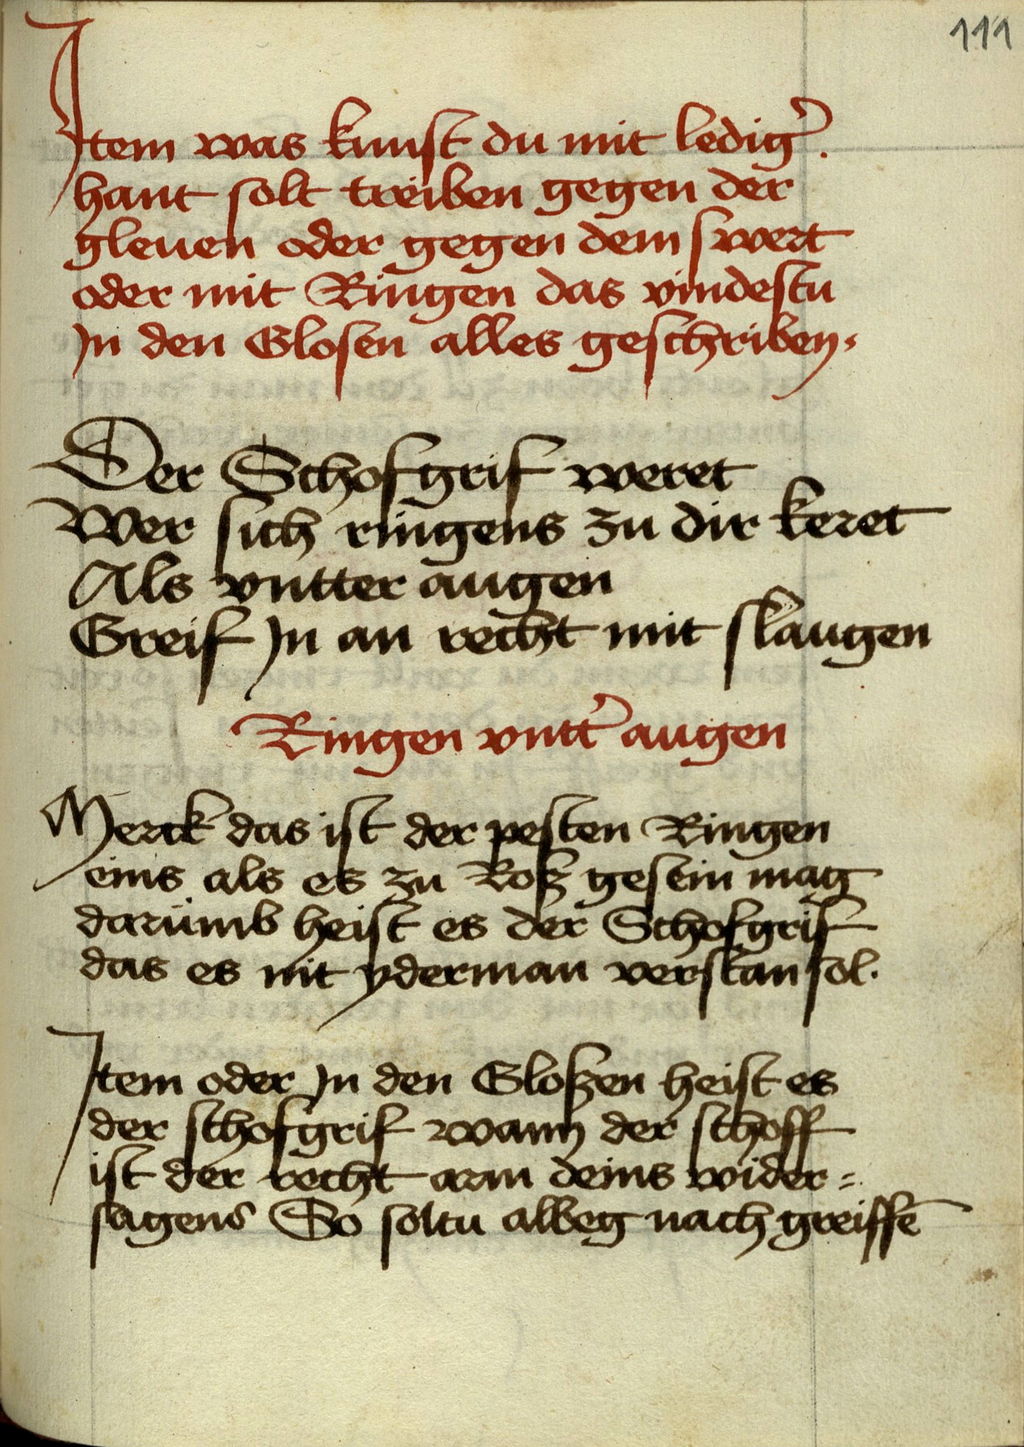 111
Item was kunst du mit ledig͛.
hant solt treiben gegen der
gleuen oder gegen dem swert
oder mit Ringen das vindestu
In den Glosen alles geschriben.
Der Schofgrif weret
Wer sich ringens zu dir keret
Als vntter augen
Greif In an recht mit slaugen
Ringen vntt͛ augen
Merck das ist der pesten Ringen
eins als es zu Roß gesein mag
darumb heist es der Schofgrif
das es nit yderman verstan sol.
Item oder In den Gloszen heist es
der schofgrif wann der schoff
ist der recht arm deins wider=
sagens So soltu albeg nach greiffē